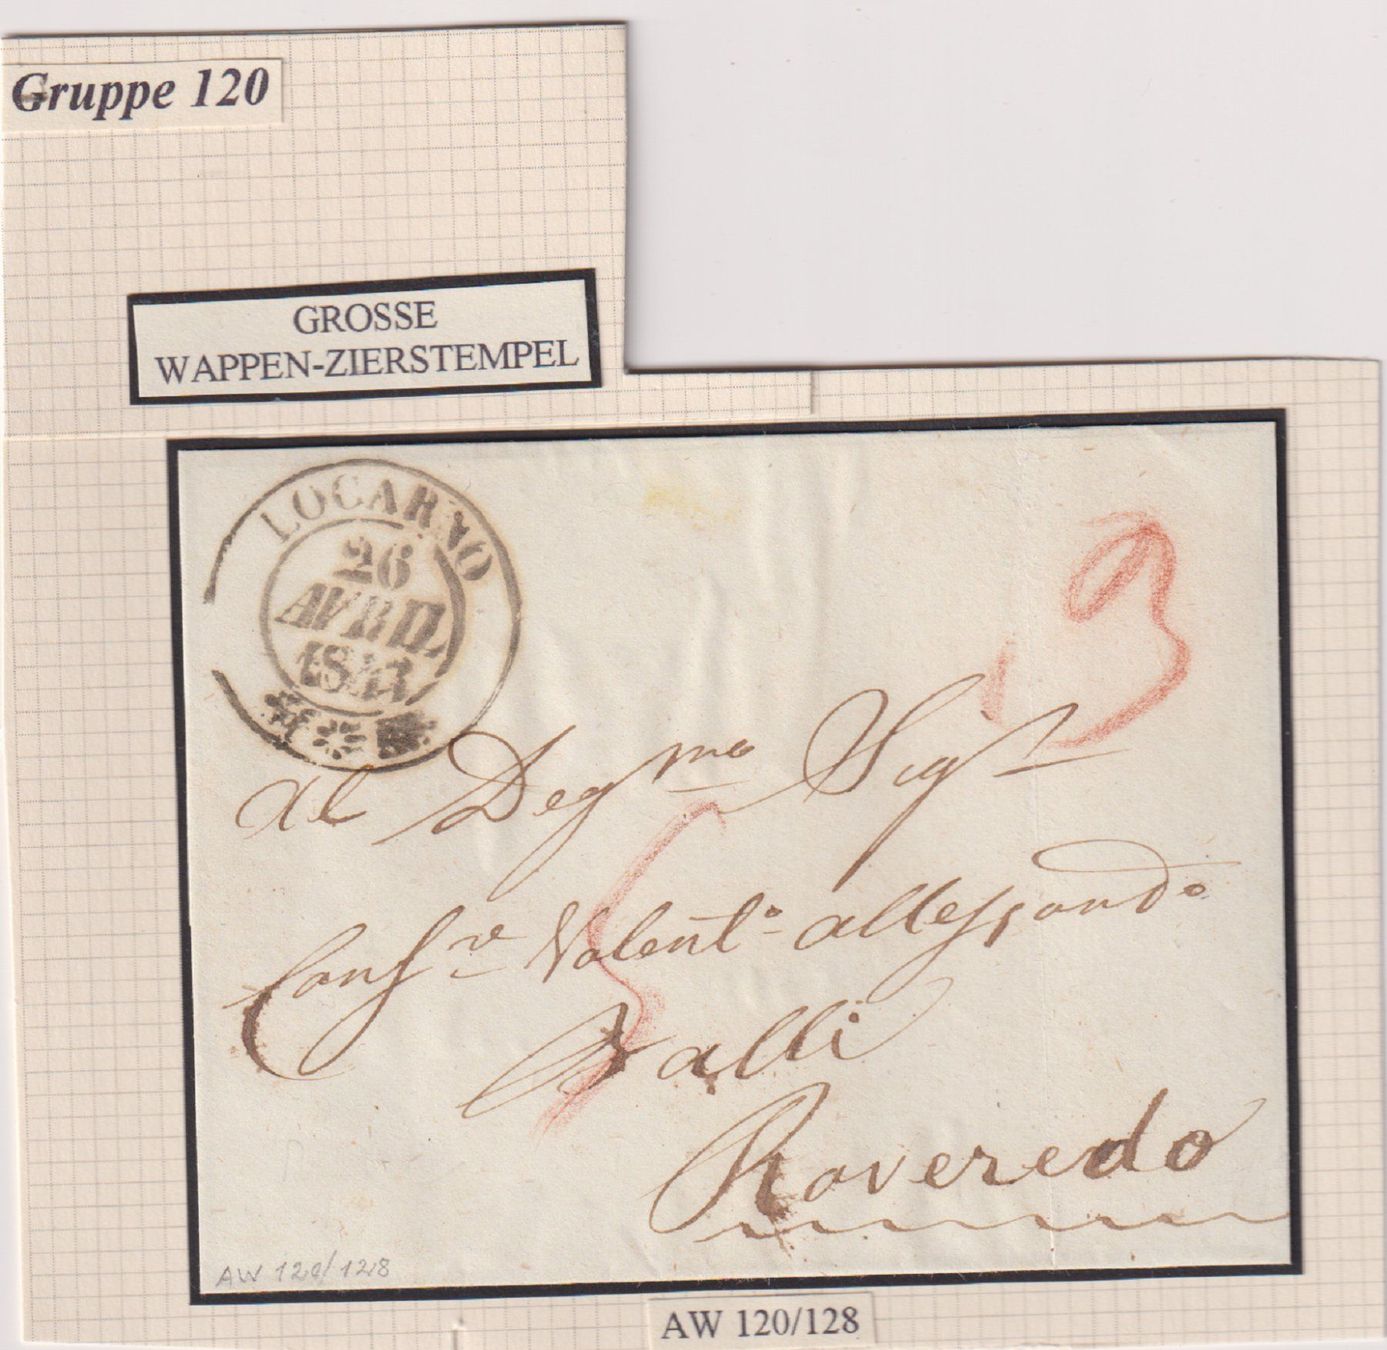 Gruppe 120
GROSSE
WAPPEN-ZIERSTEMPEL
LOCARNO
26
AVRIL
1843
3
Al Deg.mo Sig.r
5
Cons.re Valent.o allessand.o
Balli
Roveredo
AW 120/128
AW 120/128